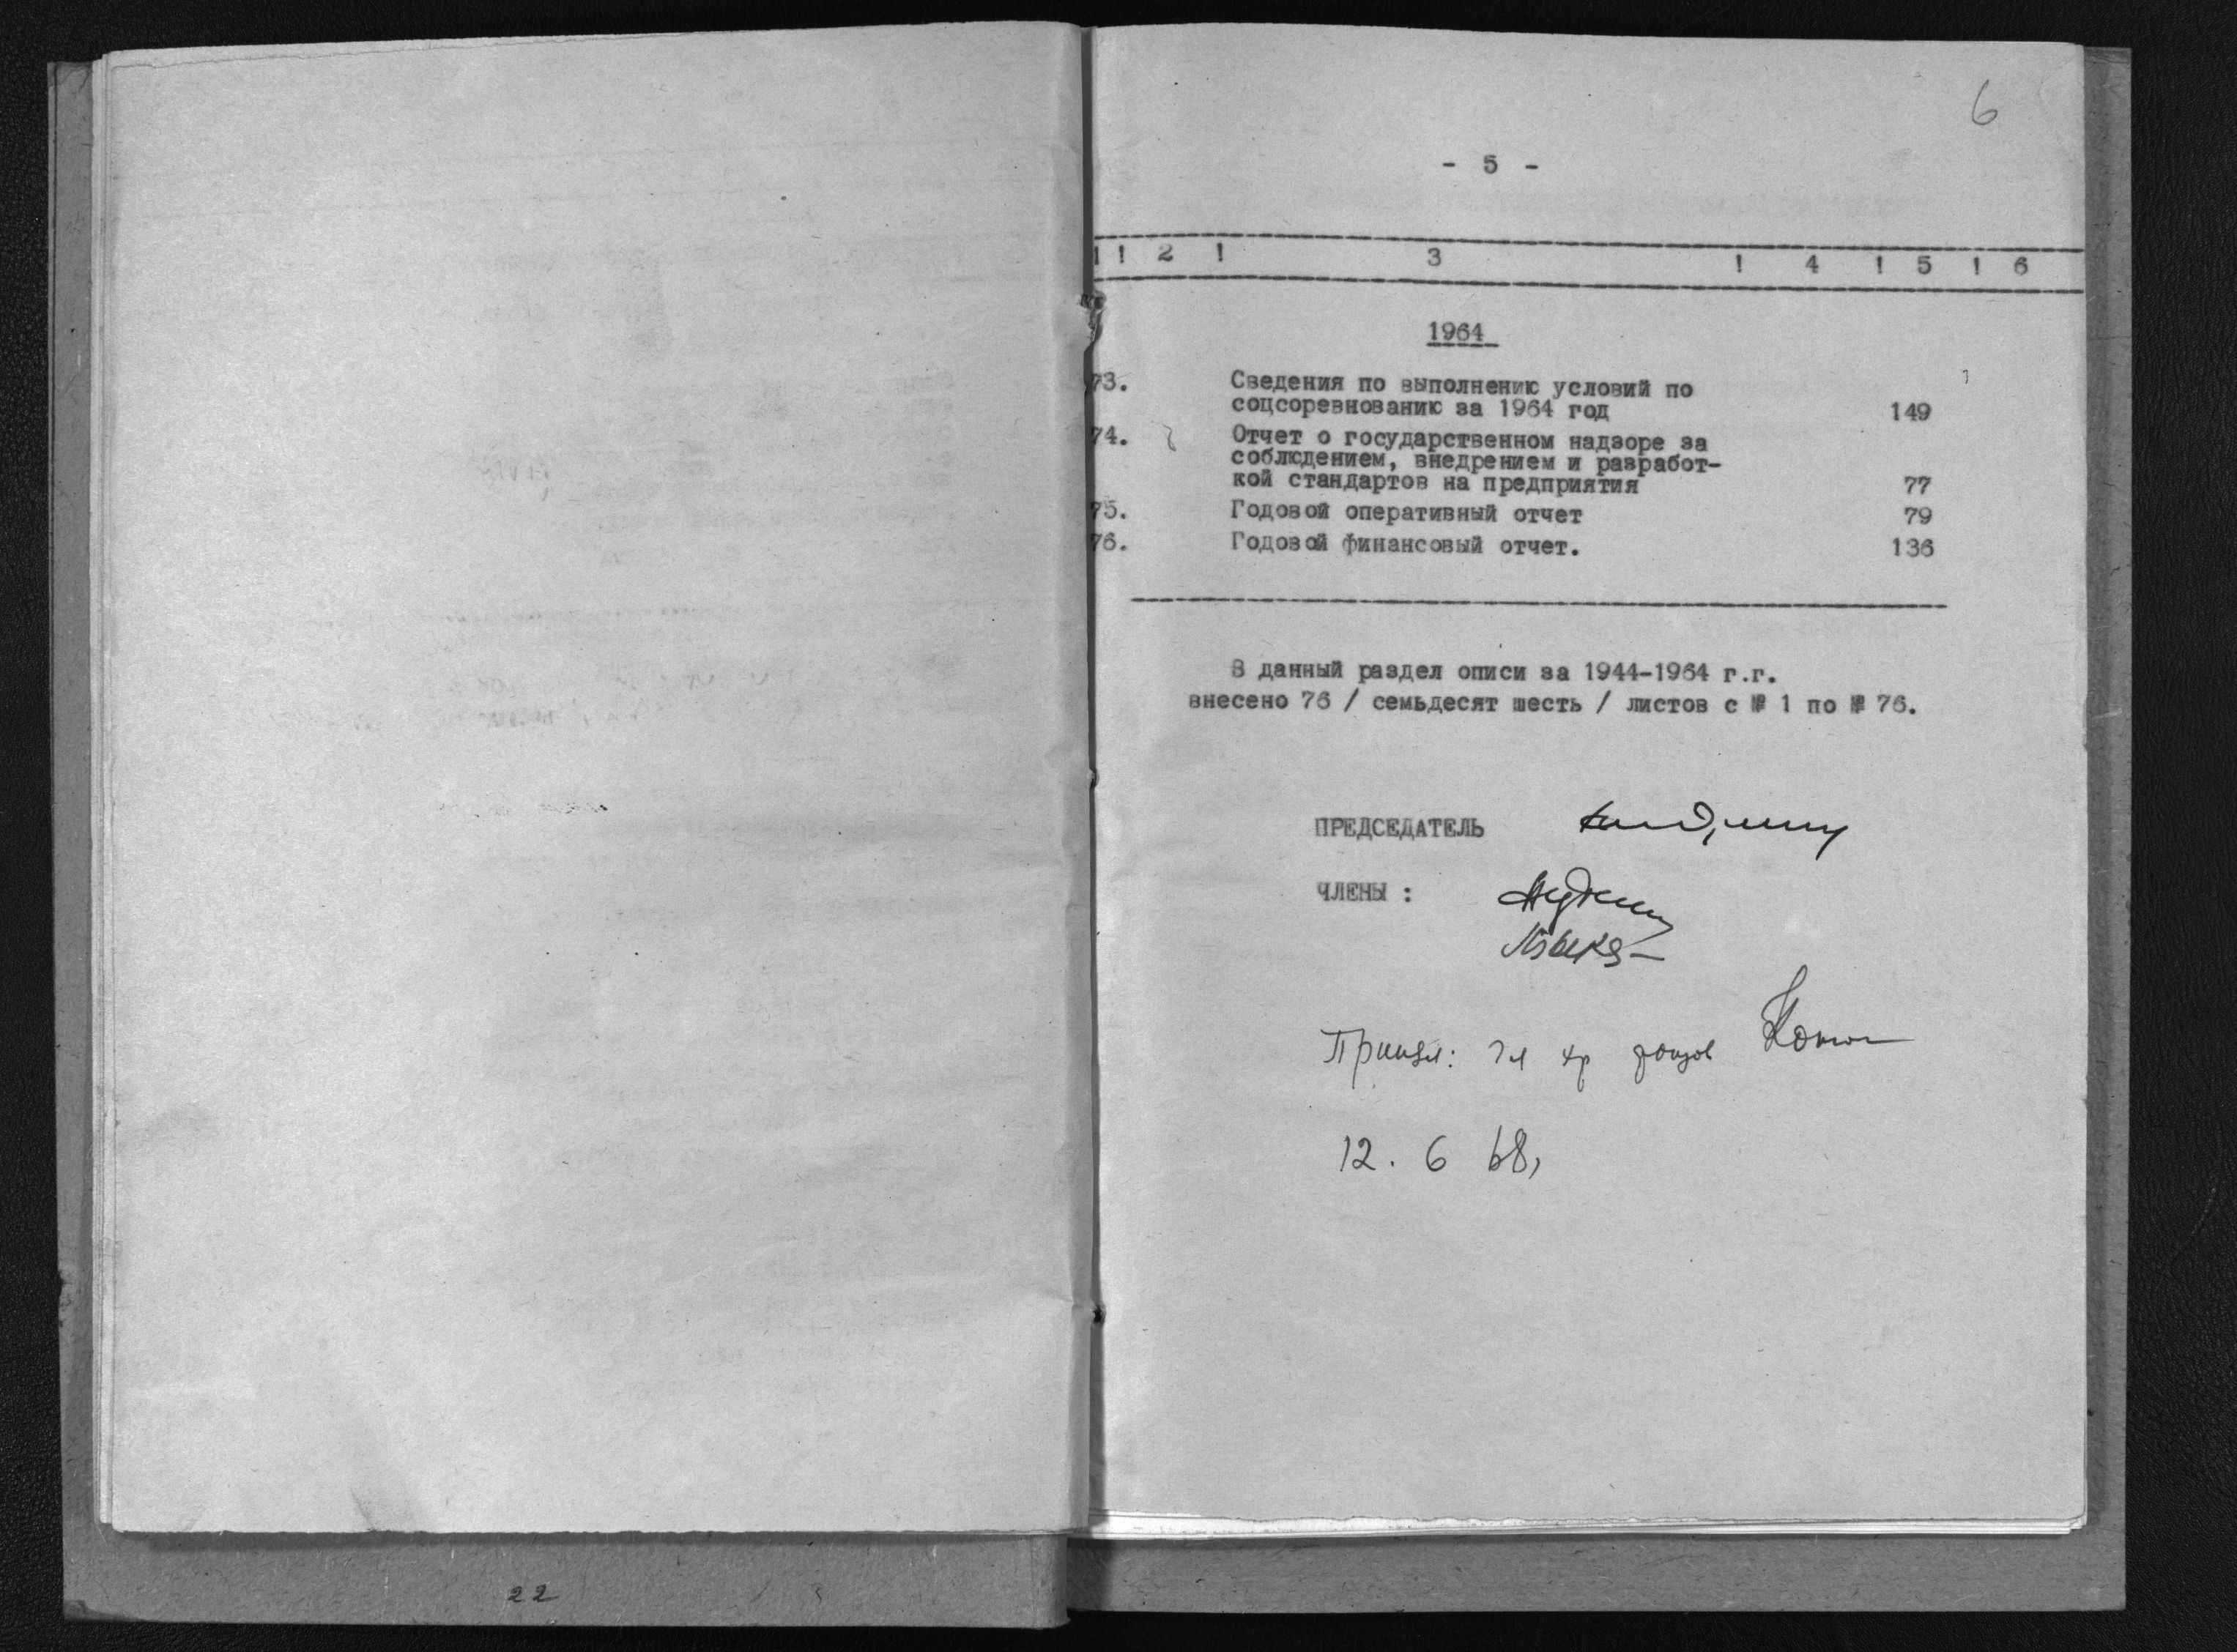 6
- 5 -
1 ! 2 ! 3 ! 4 ! 5 ! 6
1964
73. Сведения по выполнению условий по
соцсоревнованию за 1964 год 149
74. Отчет о государственном надзоре за
соблюдением, внедрением и разработ-
кой стандартов на предприятия 77
75. Годовой оперативный отчет 79
76. Годовой финансовый отчет. 136
В данный раздел описи за 1944-1964 г.г.
внесено 76 / семьдесят шесть / листов с № 1 по № 76.
ПРЕДСЕДАТЕЛЬ
ЧЛЕНЫ :
Принял: Гл хр фондов
12. 6 68,
22